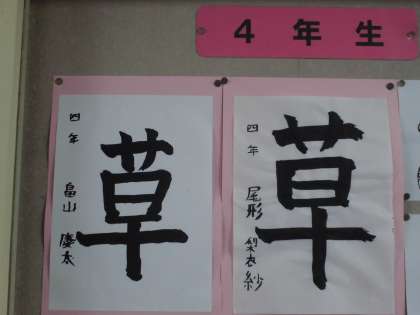 4年生
草
四年
畠山慶太
草
四年
尾形梨衣紗